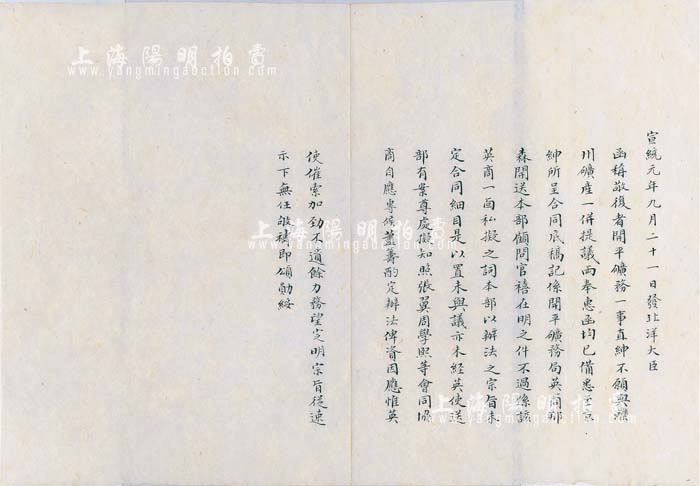 宣統元年九月二十一日發北洋大臣
函稱敬復者開平礦務一事直紳不願與灤
州礦產一併提議兩奉惠函均已備悉至京
紳所呈合同底稿記係開平礦務局英商那
森開送本部顧問官禧在明之件不過係該
英商一面私擬之詞本部以辦法之宗旨未
定合同細目是以置未與議亦未經英使送
部有案尊處擬知照張翼周學熙等會同協
商自應專候藎籌酌定辦法俾資因應惟英
使催索加勁不遺餘力務望定明宗旨從速
示下無任敬禱即頌勛綏
上海陽明拍賣
www.yangmingauction.com
上海陽明拍賣
www.yangmingauction.com